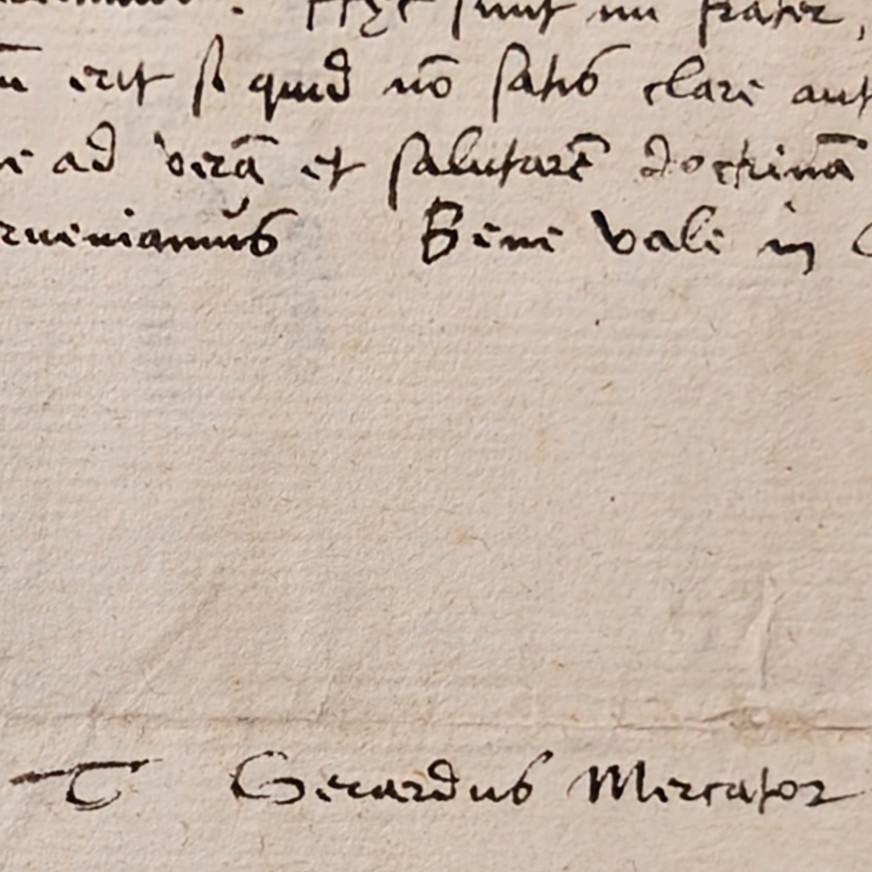 Hęc sunt mi frater,
erit si quid nō satis clare aut
ad verā et salutarē doctrinā
rueniamus Bene vale in
T Gerardus Mercator